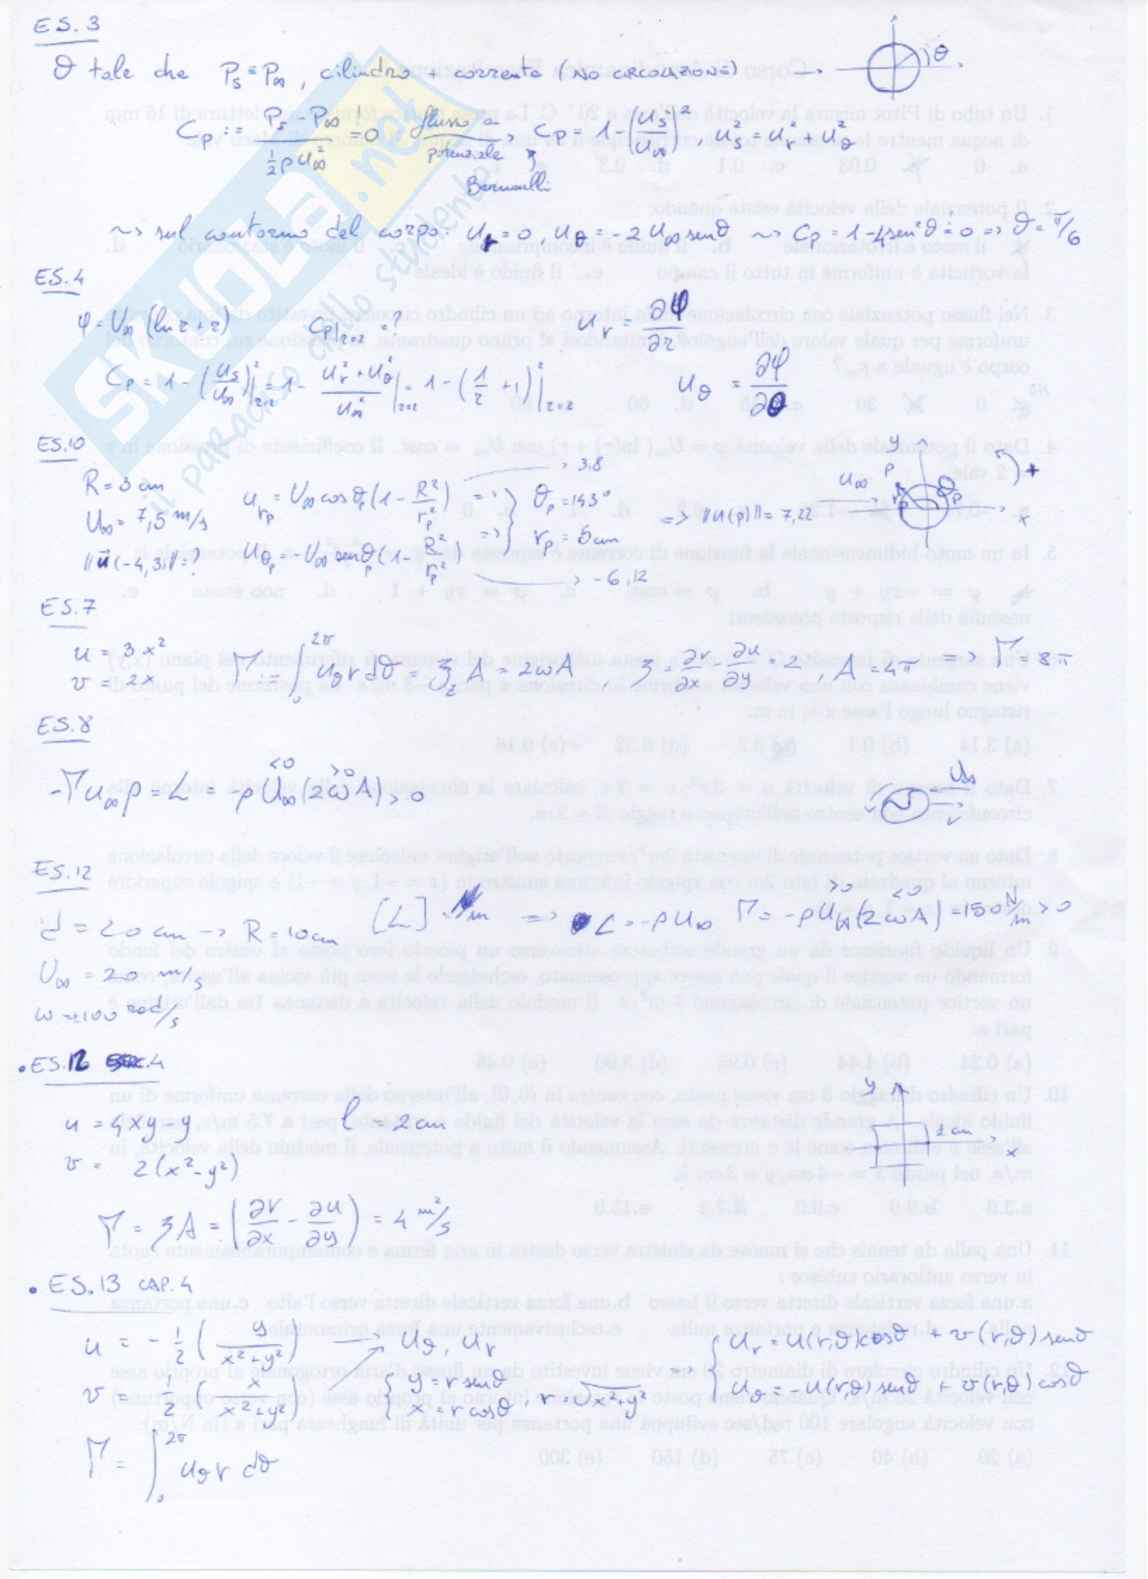 ES.3
ϑ tale che Ps = P∞, cilindro + corrente (NO CIRCOLAZIONE) → ϑ
Cp := (Ps - P∞)/(½ρu∞²) = 0 flusso potenziale → Cp = 1 - (us/u∞)², us² = ur² + uϑ²
Bernoulli
~> sul contorno del corpo: ur = 0, uϑ = -2u∞senϑ ~> Cp = 1 - 4sen²ϑ = 0 => ϑ = π/6
ES.4
φ = U∞ (ln r + r) Cp|r=2 = ? ur = ∂φ/∂r
Cp = 1 - (us/u∞)²|r=2 = 1 - (ur² + uϑ²)/u∞²|r=2 = 1 - (1/r + 1)²|r=2 uϑ = ∂φ/∂ϑ
ES.10
R = 3 cm
U∞ = 7,5 m/s
||u(-4,3)|| = ?
urp = U∞cosϑp(1 - R²/rp²) => 3,8
uϑp = -U∞senϑp(1 - R²/rp²) => -6,12
ϑp = 143°
rp = 5cm
=> ||u(P)|| = 7,22
u∞ P rp ϑp y x +
ES.7
u = 3x²
v = 2x
Γ := ∫₀^2π uϑ r dϑ = ζz A = 2ωA, ζ = ∂v/∂x - ∂u/∂y = 2, A = 4π => Γ = 8π
ES.8
-Γu∞ρ = L = -ρU∞(2ωA) > 0
<0 >0
U∞
ES.12
d = 20 cm -> R = 10cm [L] N/m => L = -ρU∞ Γ = -ρU∞(2ωA) = 150 N/m > 0
>0 <0
U∞ = 20 m/s
ω = 100 rad/s
• ES.12 4
u = 4xy - y l = 2cm
v = 2(x² - y²)
y 1 cm x
Γ = ζA = (∂v/∂x - ∂u/∂y) = 4 m²/s
• ES.13 CAP.4
u = -½(y/(x²+y²)) → uϑ, ur
v = ½ x/(x²+y²)
{ y = r senϑ
x = r cosϑ, r = √x²+y²
=> { ur = u(r,ϑ)cosϑ + v(r,ϑ)senϑ
uϑ = -u(r,ϑ)senϑ + v(r,ϑ)cosϑ
Γ = ∫₀^2π uϑ r dϑ
SKUOLA.net
il paradiso dello studente